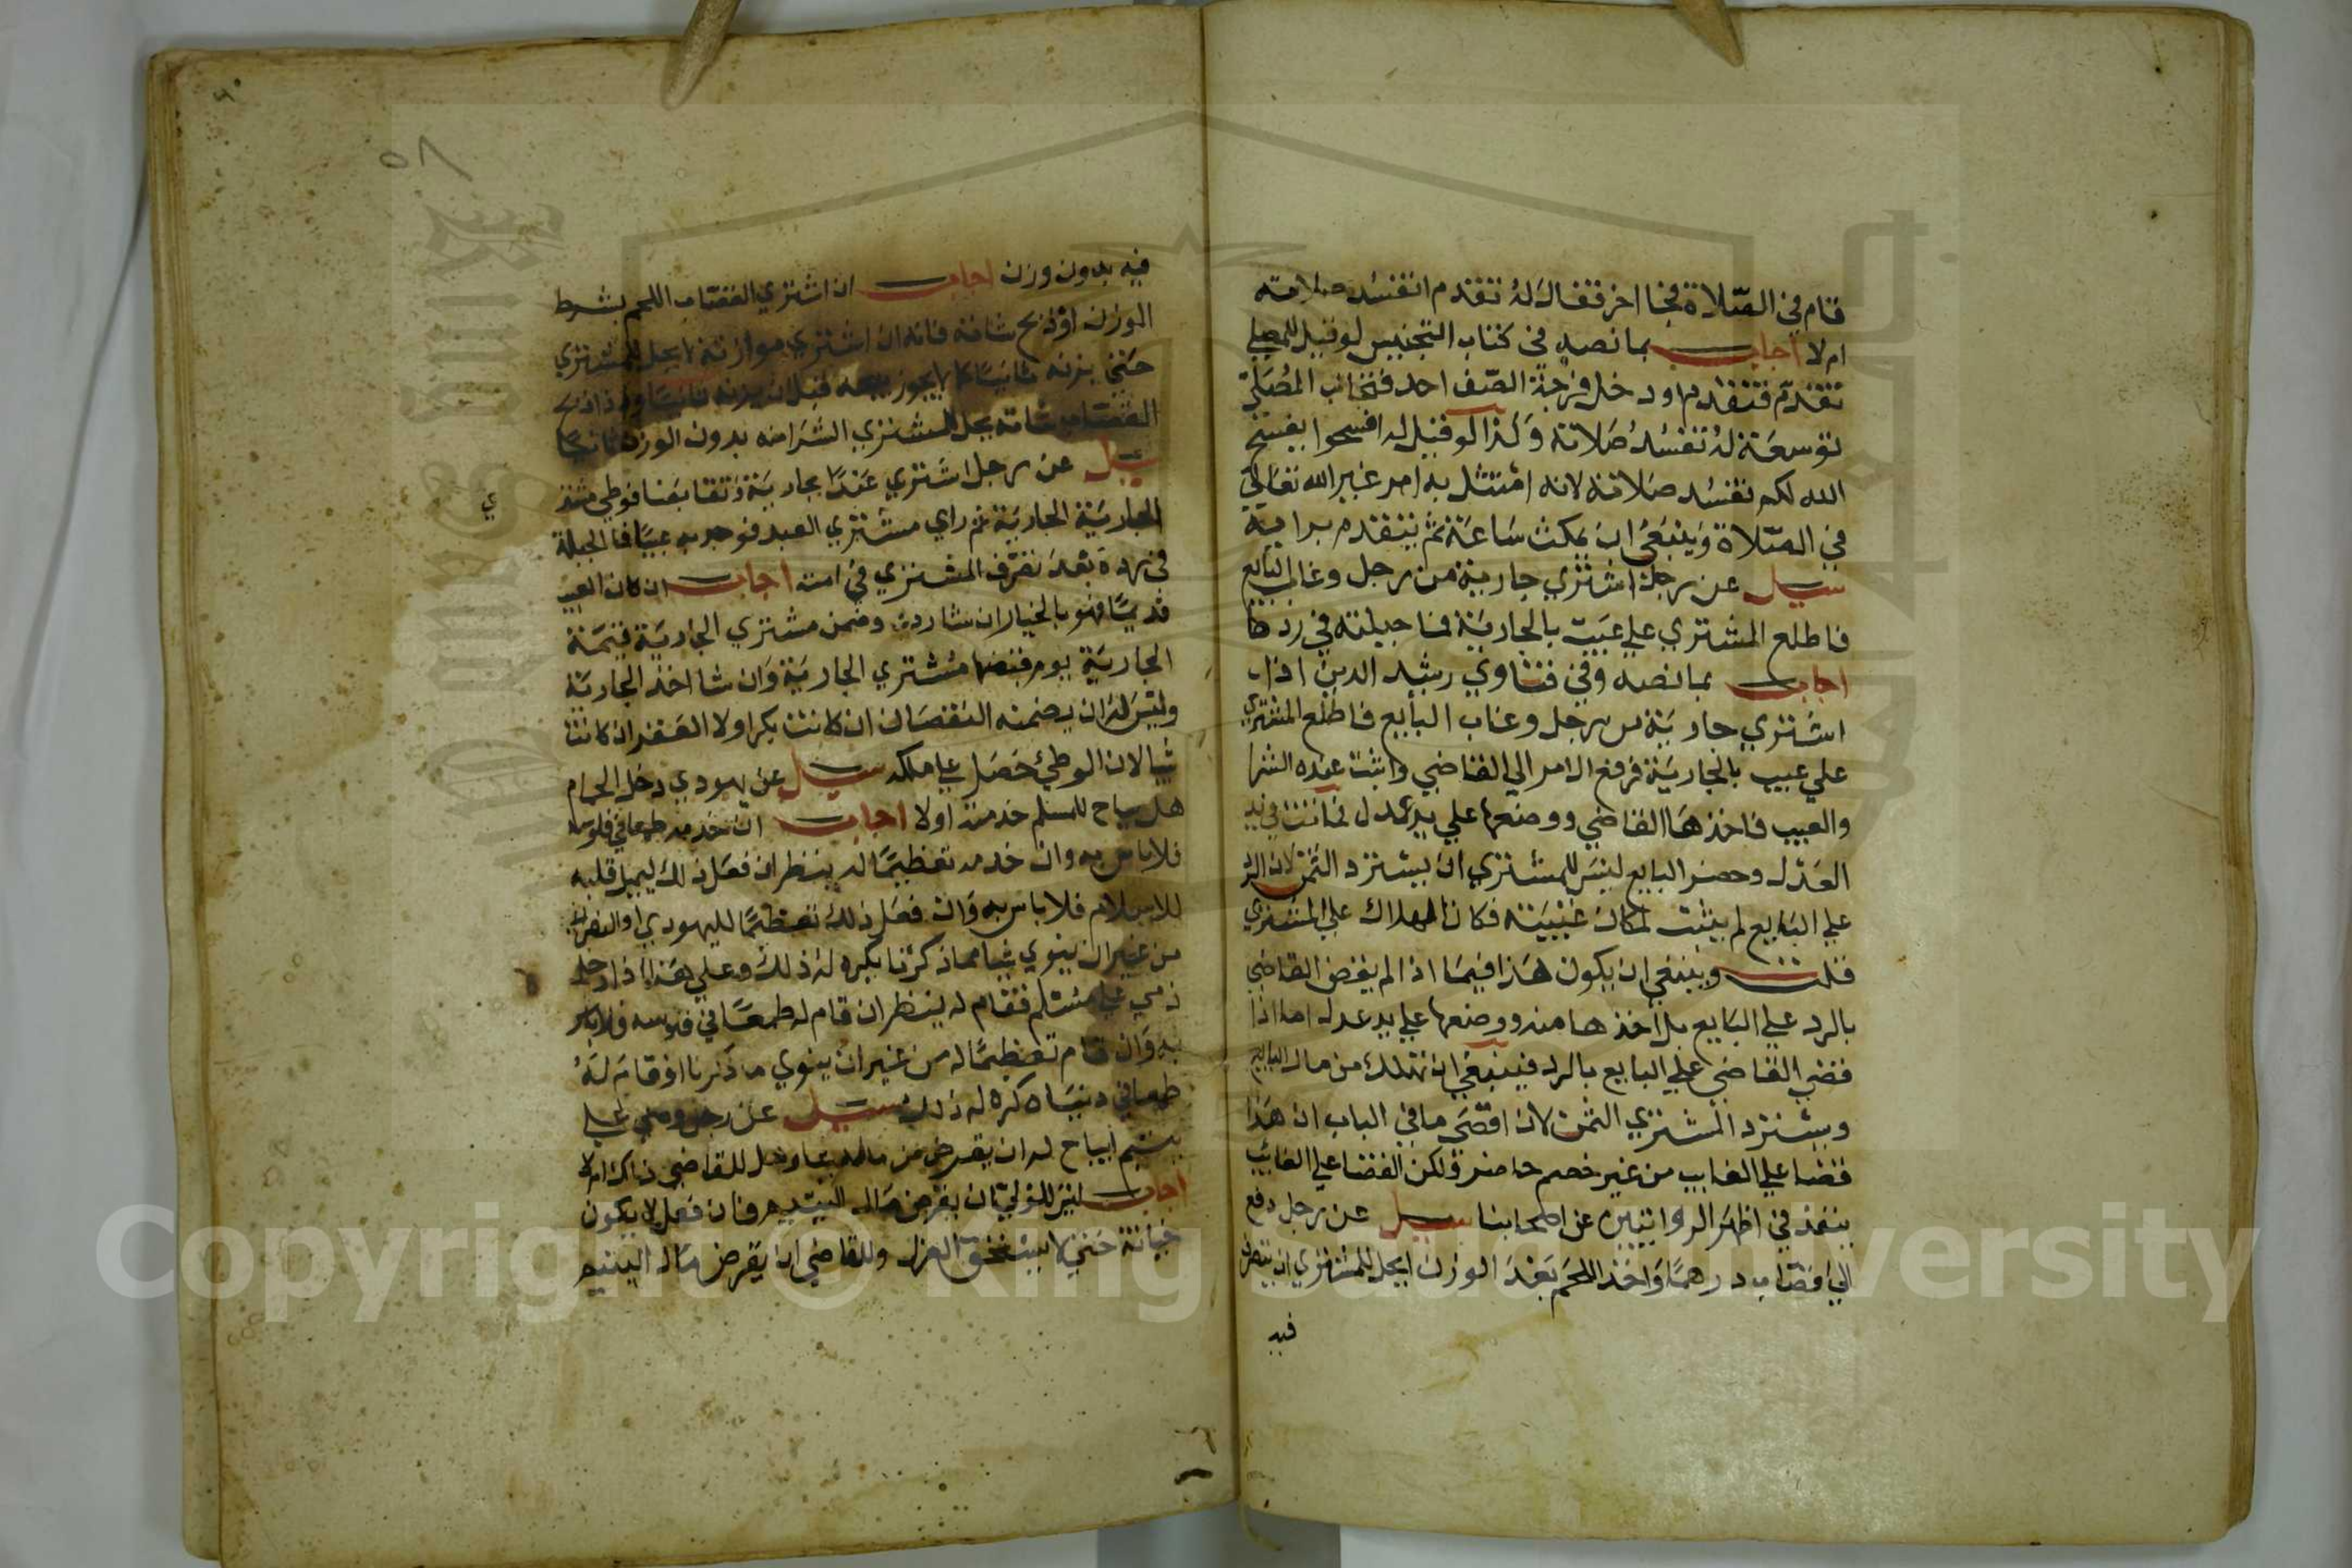 قام في الصلاة فجا اخر فقال له تقدم اتفسد صلاته
ام لا اجاب بما نصه في كتاب التجنيس لو قيل للمصلي
تقدم فتقدم او دخل فرجة الصف احد فتجانب المصلي
توسعة له تفسد صلاته وكذا لو قيل له افسحوا يفسح
الله لكم تفسد صلاته لانه امتثل به امر غير الله تعالى
في الصلاة وينبغي ان يمكث ساعة ثم يتقدم برايه
سيل عن رجل اشتري جارية من رجل وغاب البايع
فاطلع المشتري علي عيب بالجارية فما حيلته في ردها
اجاب بما نصه وفي فتاوي رشيد الدين اذا
اشتري جارية من رجل وغاب البايع فاطلع المشتري
علي عيب بالجارية فرفع الامر الي القاضي واثبت عنده الشرا
والعيب فاخذها القاضي ووضعها علي يد عدل فماتت في يد
العدل وحضر البايع ليس للمشتري ان يسترد الثمن لان الرد
علي البايع لم يثبت لمكان غيبته فكان الهلاك علي المشتري
قلت وينبغي ان يكون هذا فيما اذا لم يقض القاضي
بالرد علي البايع بل اخذها منه ووضعها علي يد عدل اما اذا
قضي القاضي علي البايع بالرد فينبغي ان تهلك من مال البايع
ويسترد المشتري الثمن لان اقصى ما في الباب ان هذا
قضا علي الغايب من غير خصم حاضر ولكن القضا علي الغايب
ينفذ في اظهر الروايتين عن اصحابنا سيل عن رجل دفع
الي قصاب درهما واخذ اللحم بعد الوزن ايحل للمشتري ان يتصرف
فيه
٥٨
فيه بدون وزن اجاب ان اشتري القصاب اللحم بشرط
الوزن او ذبح شاته فانه ان اشتري موازنة لا يحل للمشتري
حتي يزنه ثانيا كما لا يجوز بيعه قبل ان يزنه ثانيا وان ذبح
القصاب شاته يحل للمشتري الشرا منه بدون الوزن ثانيا
سيل عن رجل اشتري عبدا بجارية وتقابضا فوطي مشتر
ي
الجارية الجارية ثم راي مشتري العبد فوجد به عيبا فما الحيلة
في رده بعد تصرف المشتري في امته اجاب ان كان العيب
قديما فهو بالخيار ان شا رده وضمن مشتري الجارية قيمة
الجارية يوم قبضها مشتري الجارية وان شا اخذ الجارية
وليس له ان يضمنه النقصان ان كانت بكرا ولا العقر ان كانت
ثيبا لان الوطي حصل علي ملكه سيل عن يهودي دخل الحمام
هل يباح للمسلم خدمته اولا اجاب ان خدمه طمعا في فلوسه
فلا باس به وان خدمه تعظيما له ينظر ان فعل ذلك ليميل قلبه
للاسلام فلا باس به وان فعل ذلك تعظيما لليهودي او النصراني
من غير ان ينوي شيا مما ذكرنا يكره له ذلك وعلي هذا اذا دخل
ذمي علي مسلم فقام له ينظر ان قام له طمعا في فلوسه فلا باس
به وان قام تعظيما له من غير ان ينوي ما ذكرنا او قام له
طمعا في دنياه كره له ذلك سيل عن رجل وصي علي
يتيم ايباح له ان يقرض من ماله وهل للقاضي ذاك ام لا
اجاب ليس للولي ان يقرض مال اليتيم فان فعل لا يكون
خيانة حتي لا يستحق العزل وللقاضي ان يقرض مال اليتيم
Copyright © King Saud University